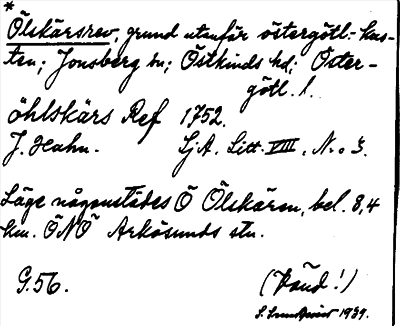 *
Ölskärsrev, grund utanför östergötl.-kus-
ten; Jonsberg sn; Östkinds hd; Öster-
götl. l.
öhlskärs Ref 1752.
J. Hahn. SjA. Litt. VIII, N:o 3.
Läge någonstädes Ö Ölskären, bel. 8,4
km. ÖNÖ Arkösunds stn.
G.56. (Känd!)
1939.